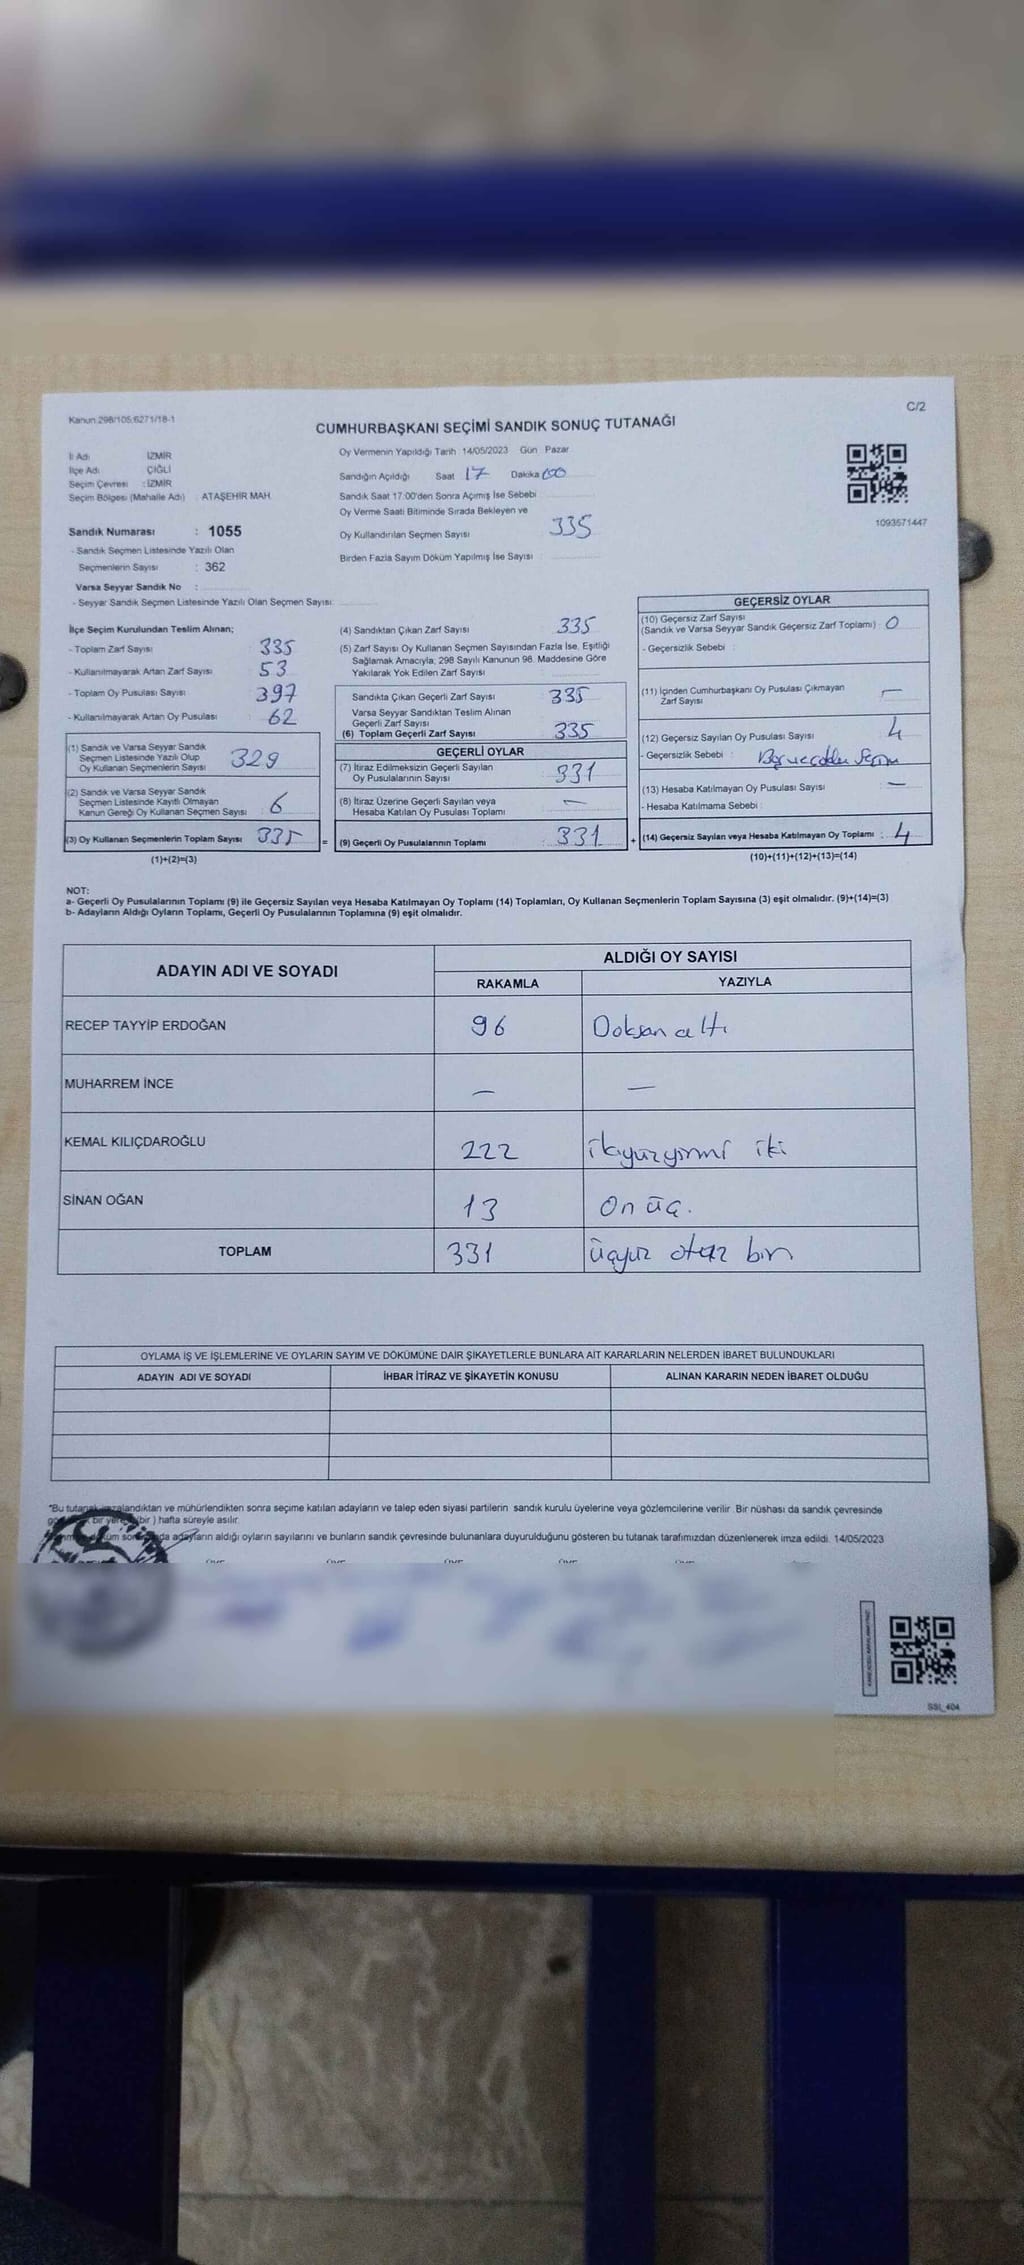 Kanun 298/105;6271/18-1
C/2
CUMHURBAŞKANI SEÇİMİ SANDIK SONUÇ TUTANAĞI
İl Adı : İZMİR
İlçe Adı : ÇİĞLİ
Seçim Çevresi : İZMİR
Seçim Bölgesi (Mahalle Adı) : ATAŞEHİR MAH.
Oy Vermenin Yapıldığı Tarih 14/05/2023 Gün Pazar
Sandığın Açıldığı Saat 17 Dakika 00
Sandık Saat 17:00'den Sonra Açımış İse Sebebi
Oy Verme Saati Bitiminde Sırada Bekleyen ve
Oy Kullandırılan Seçmen Sayısı 335
Birden Fazla Sayım Döküm Yapılmış İse Sayısı
1093571447
Sandık Numarası : 1055
- Sandık Seçmen Listesinde Yazılı Olan
Seçmenlerin Sayısı : 362
Varsa Seyyar Sandık No :
- Seyyar Sandık Seçmen Listesinde Yazılı Olan Seçmen Sayısı:
İlçe Seçim Kurulundan Teslim Alınan;
- Toplam Zarf Sayısı : 335
- Kullanılmayarak Artan Zarf Sayısı : 53
- Toplam Oy Pusulası Sayısı : 397
- Kullanılmayarak Artan Oy Pusulası : 62
(1) Sandık ve Varsa Seyyar Sandık
Seçmen Listesinde Yazılı Olup
Oy Kullanan Seçmenlerin Sayısı 329
(2) Sandık ve Varsa Seyyar Sandık
Seçmen Listesinde Kayıtlı Olmayan
Kanun Gereği Oy Kullanan Seçmen Sayısı : 6
(3) Oy Kullanan Seçmenlerin Toplam Sayısı : 335 =
(1)+(2)=(3)
(4) Sandıktan Çıkan Zarf Sayısı 335
(5) Zarf Sayısı Oy Kullanan Seçmen Sayısından Fazla İse, Eşitliği
Sağlamak Amacıyla, 298 Sayılı Kanunun 98. Maddesine Göre
Yakılarak Yok Edilen Zarf Sayısı
Sandıkta Çıkan Geçerli Zarf Sayısı : 335
Varsa Seyyar Sandıktan Teslim Alınan
Geçerli Zarf Sayısı
(6) Toplam Geçerli Zarf Sayısı : 335
GEÇERLİ OYLAR
(7) İtiraz Edilmeksizin Geçerli Sayılan
Oy Pusulalarının Sayısı : 331
(8) İtiraz Üzerine Geçerli Sayılan veya
Hesaba Katılan Oy Pusulası Toplamı : —
(9) Geçerli Oy Pusulalarının Toplamı : 331 +
GEÇERSİZ OYLAR
(10) Geçersiz Zarf Sayısı
(Sandık ve Varsa Seyyar Sandık Geçersiz Zarf Toplamı) : 0
- Geçersizlik Sebebi :
(11) İçinden Cumhurbaşkanı Oy Pusulası Çıkmayan
Zarf Sayısı —
(12) Geçersiz Sayılan Oy Pusulası Sayısı : 4
- Geçersizlik Sebebi :
(13) Hesaba Katılmayan Oy Pusulası Sayısı : —
- Hesaba Katılmama Sebebi :
(14) Geçersiz Sayılan veya Hesaba Katılmayan Oy Toplamı : 4
(10)+(11)+(12)+(13)=(14)
NOT:
a- Geçerli Oy Pusulalarının Toplamı (9) ile Geçersiz Sayılan veya Hesaba Katılmayan Oy Toplamı (14) Toplamları, Oy Kullanan Seçmenlerin Toplam Sayısına (3) eşit olmalıdır. (9)+(14)=(3)
b- Adayların Aldığı Oyların Toplamı, Geçerli Oy Pusulalarının Toplamına (9) eşit olmalıdır.
ADAYIN ADI VE SOYADI
ALDIĞI OY SAYISI
RAKAMLA YAZIYLA
RECEP TAYYİP ERDOĞAN 96 Doksan altı
MUHARREM İNCE — —
KEMAL KILIÇDAROĞLU 222 ikiyüzyirmi iki
SİNAN OĞAN 13 On üç.
TOPLAM 331 üçyüz otuz bir
OYLAMA İŞ VE İŞLEMLERİNE VE OYLARIN SAYIM VE DÖKÜMÜNE DAİR ŞİKAYETLERLE BUNLARA AİT KARARLARIN NELERDEN İBARET BULUNDUKLARI
ADAYIN ADI VE SOYADI İHBAR İTİRAZ VE ŞİKAYETİN KONUSU ALINAN KARARIN NEDEN İBARET OLDUĞU
*Bu tutanak imzalandıktan ve mühürlendikten sonra seçime katılan adayların ve talep eden siyasi partilerin sandık kurulu üyelerine veya gözlemcilerine verilir. Bir nüshası da sandık çevresinde
bir yere (bir) hafta süreyle asılır.
adayların aldığı oyların sayılarını ve bunların sandık çevresinde bulunanlara duyurulduğunu gösteren bu tutanak tarafımızdan düzenlenerek imza edildi. 14/05/2023
SSI_404